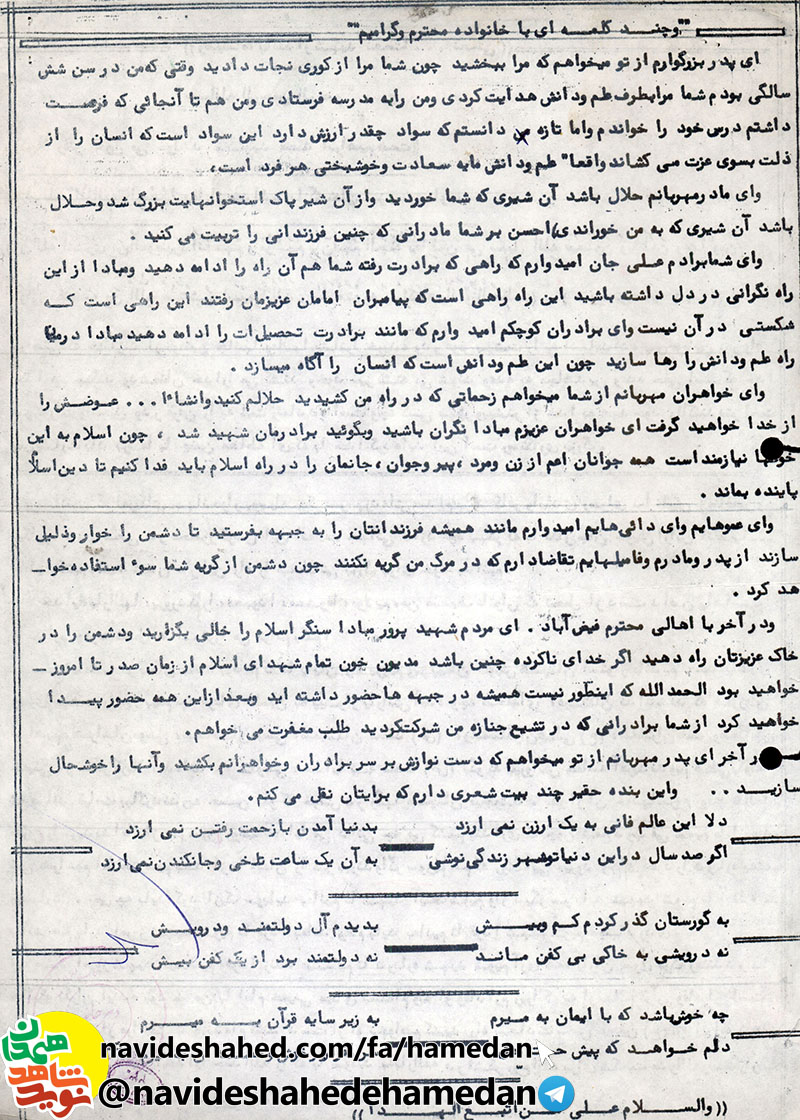 ""وچنــد کلمــه ای با خانواده محترم وگرامیم""
ای پدر بزرگوارم از تو میخواهم که مرا ببخشید چون شما مرا از کوری نجات دادید وقتی که من در سن شش
سالگی بودم شما مرا بطرف علم ودانش هدایت کردی ومن را به مدرسه فرستادی ومن هم تا آنجائی که فرصــت
داشتم درس خود را خواندم واما تازه می دانستم که سواد چقدر ارزش دارد این سواد است که انسان را از
ذلت بسوی عزت مــی کشاند واقعا" علم ودانش مایه سعادت وخوشبختی هر فرد است،
وای مادر مهربانم حلال باشد آن شیری که شما خوردید واز آن شیر پاک استخوانهایت بزرگ شد وحــلال
باشد آن شیری که به من خوراندی(احسن بر شما مادرانی که چنین فرزندانی را تربیت می کنید .
وای شما برادرم عــلی جان امیدوارم که راهی که برادرت رفته شما هم آن راه را ادامه دهید ومبادا از این
راه نگرانی در دل داشته باشید این راه راهی است که پیامبران امامان عزیزمان رفتند این راهی است کــه
شکستی در آن نیست وای برادران کوچکم امید وارم که مانند برادرت تحصیلات را ادامه دهید مبادا در میان
راه علم ودانش را رها سازید چون این علم ودانش است که انسان را آگاه میسازد .
وای خواهران مهربانم از شما میخواهم زحماتی که در راه من کشیدید حلالم کنید وانشاءا ... عــوضــش را
از خدا خواهید گرفت ای خواهران عزیزم مبادا نگران باشید وبگوئید برادرمان شهید شد ، چون اسلام به این
خونها نیازمند است همه جوانان اعم از زن ومرد ،پیر وجوان ،جانمان را در راه اسلام باید فدا کنیم تا دین اسلا
پاینده بماند .
وای عموهایم وای دائی هایم امیدوارم مانند همیشه فرزندانتان را به جبهه بفرستید تا دشمن را خوار وذلیل
سازند از پدر ومادرم وفامیلهایم تقاضا دارم که در مرگ من گریه نکنند چون دشمن از گریه شما سوء استفاده خوا ــ
هد کرد .
ودر آخر با اهالی محترم فیض آباد . ای مردم شهید پرور مبادا سنگر اسلام را خالی بگزارید ودشمن را در
خاک عزیزتان راه دهید اگر خدای ناکرده چنین باشد مدیون خون تمام شهدای اسلام از زمان صدر تا امروز ــ
خواهید بود الحمد الله که اینطور نیست همیشه در جبهه ها حضور داشته اید وبعد از این همه حضور پیــدا
خواهید کرد از شما برادرانی که در تشیع جنازه من شرکت کردید طلب مغفرت می خواهم.
ر آخر ای پدر مهربانم از تو میخواهم که دست نوازش بر سر برادران وخواهرانم بکشید وآنها را خوشحال
سازیــد . . واین بنده حقیر چند بیت شعری دارم که برایتان نقل می کنم .
دلا این عالم فانی به یک ارزن نمی ارزد بدنیا آمدن با زحمت رفتــن نمی ارزد
اگر صد سال در این دنیا تو شهر زندگی نوشی به آن یک ساعت تلخی وجانکندن نمی ارزد
به گورستان گذر کردم کــم وبیــش بدیدم آل دولتمند ودرویــش
نه درویشی به خاکی بی کفن مانــد نه دولتمند برد از یک کفن بیــش
چه خوش باشد که با ایمان به میرم به زیر سایه قرآن بــه میــرم
دلم خواهــد که پیش
navideshahed.com/fa/hamedan
@navideshahedehamedan
نوید شاهد همدان
((والســلام عــلی مــن اتبــع الهــدا))